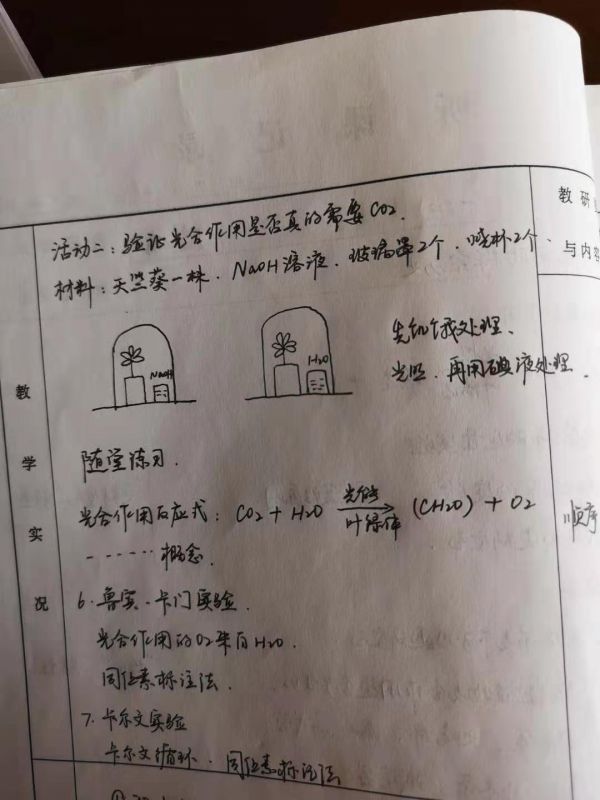 听课记录
教研
与内容
活动二：验证光合作用是否真的需要CO2.
材料：天竺葵一株．NaOH溶液．玻璃罩2个．烧杯2个．
NaOH
H2O
先饥饿处理．
光照．再用碘液处理．
教学实况
随堂练习．
光合作用反应式：CO2 + H2O 光能 叶绿体 (CH2O) + O2
顺序
------概念．
6．鲁宾、卡门实验．
光合作用的O2来自H2O．
同位素标记法．
7．卡尔文实验
卡尔文循环．同位素标记法